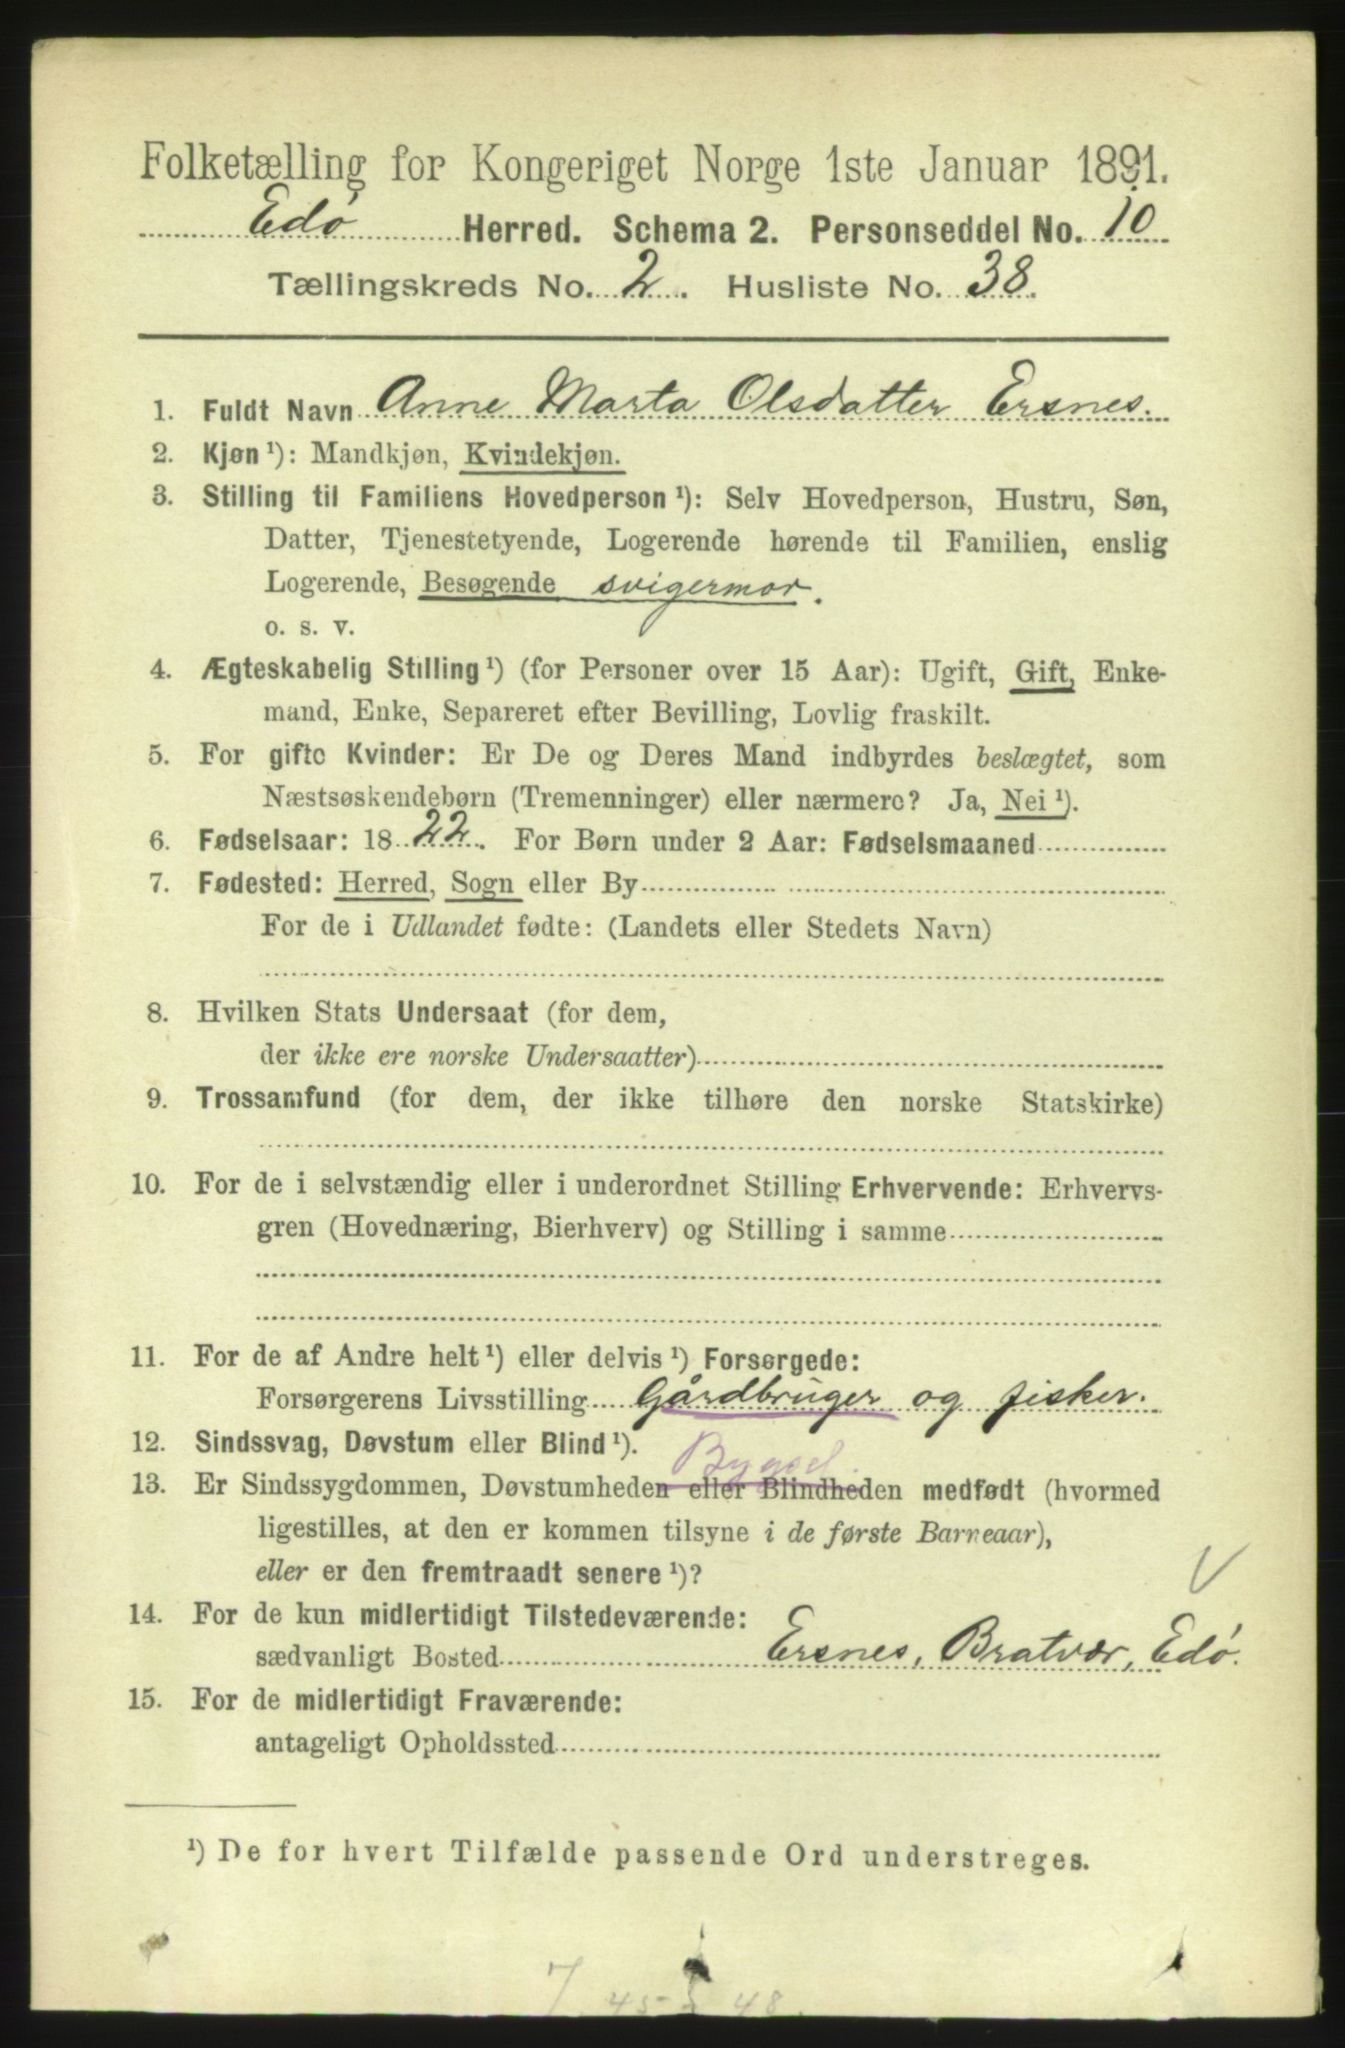 Folketælling for Kongeriget Norge 1ste Januar 1891.
Edø Herred. Schema 2. Personseddel No. 10
Tællingskreds No. 2. Husliste No. 38.
1. Fuldt Navn Anne Marta Olsdatter Ersnes.
2. Kjøn¹): Mandkjøn, Kvindekjøn.
3. Stilling til Familiens Hovedperson¹): Selv Hovedperson, Hustru, Søn,
Datter, Tjenestetyende, Logerende hørende til Familien, enslig
Logerende, Besøgende svigermor.
o. s. v.
4. Ægteskabelig Stilling¹) (for Personer over 15 Aar): Ugift, Gift, Enke-
mand, Enke, Separeret efter Bevilling, Lovlig fraskilt.
5. For gifte Kvinder: Er De og Deres Mand indbyrdes beslægtet, som
Næstsøskendebørn (Tremenninger) eller nærmere? Ja, Nei¹).
6. Fødselsaar: 1822. For Børn under 2 Aar: Fødselsmaaned
7. Fødested: Herred, Sogn eller By
For de i Udlandet fødte: (Landets eller Stedets Navn)
8. Hvilken Stats Undersaat (for dem,
der ikke ere norske Undersaatter)
9. Trossamfund (for dem, der ikke tilhøre den norske Statskirke)
10. For de i selvstændig eller i underordnet Stilling Erhvervende: Erhvervs-
gren (Hovednæring, Bierhverv) og Stilling i samme
11. For de af Andre helt¹) eller delvis¹) Forsørgede:
Forsørgerens Livsstilling Gårdbruger og fisker.
12. Sindssvag, Døvstum eller Blind¹). Bygsel.
13. Er Sindssygdommen, Døvstumheden eller Blindheden medfødt (hvormed
ligestilles, at den er kommen tilsyne i de første Barneaar),
eller er den fremtraadt senere¹)?
V
14. For de kun midlertidigt Tilstedeværende:
sædvanligt Bosted Ersnes, Bratvær, Edø.
15. For de midlertidigt Fraværende:
antageligt Opholdssted
¹) De for hvert Tilfælde passende Ord understreges.
7 45 48.